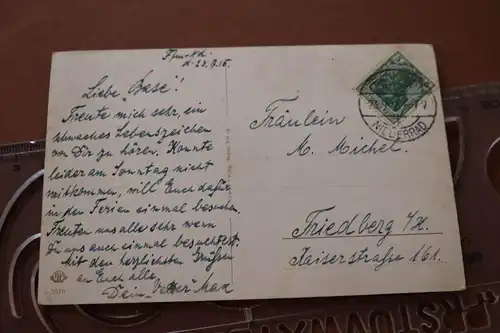 d. 23.9.15.
Liebe "Base"!
Freute mich sehr, ein
schwaches Lebenszeichen
von Dir zu hören. Konnte
leider am Sonntag nicht
mitkommen, will Euch dafür
in den Ferien einmal besuchen.
Freuten uns alle sehr wenn
Du uns auch einmal besuchtest.
Mit den herzlichsten Grüßen
an Euch alle,
Dein "Vetter" Max
Fräulein
M. Michel.
Friedberg i/H.
Kaiserstraße 161.
NIEDERRAD